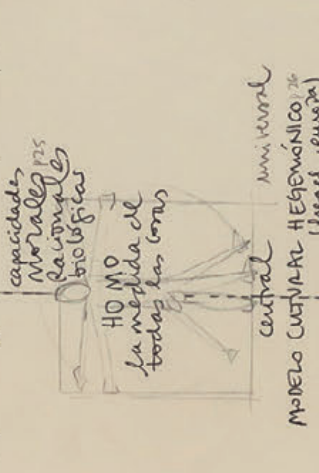 capacidades
Morales p25
Racionales
biológicas
HOMO
la medida de
todas las cosas
central universal
MODELO CULTURAL HEGEMÓNICO p26